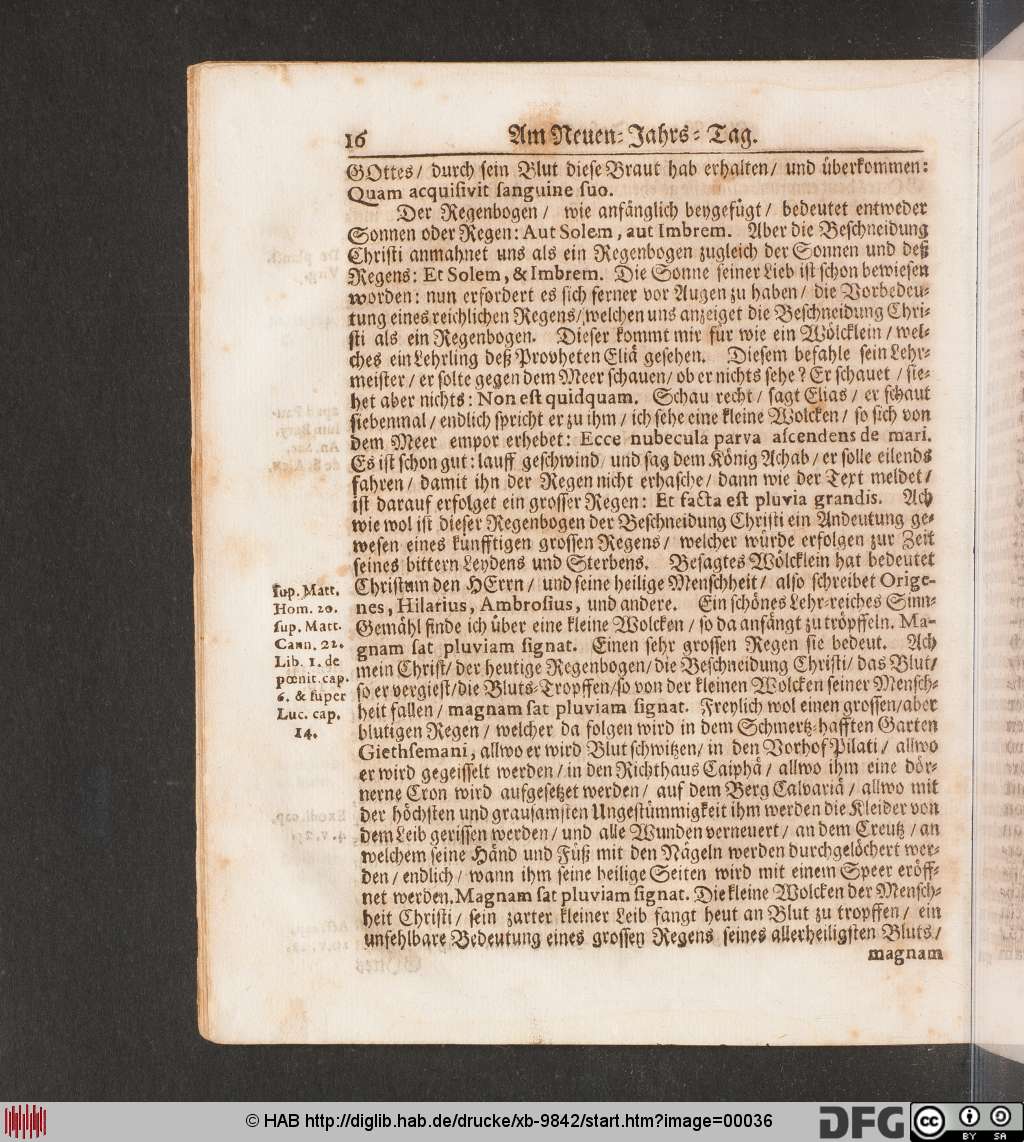 16 Am Neuen-Jahrs-Tag.
GOttes / durch sein Blut diese Braut hab erhalten / und überkommen:
Quam acquisivit sanguine suo.
Der Regenbogen / wie anfänglich beygefügt / bedeutet entweder
Sonnen oder Regen: Aut Solem, aut Imbrem. Aber die Beschneidung
Christi anmahnet uns als ein Regenbogen zugleich der Sonnen und deß
Regens: Et Solem, & Imbrem. Die Sonne seiner Lieb ist schon bewiesen
worden: nun erfordert es sich ferner vor Augen zu haben / die Vorbedeu-
tung eines reichlichen Regens / welchen uns anzeiget die Beschneidung Chri-
sti als ein Regenbogen. Dieser kommt mir für wie ein Wölcklein / wel-
ches ein Lehrling deß Propheten Eliä gesehen. Diesem befahle sein Lehr-
meister / er solte gegen dem Meer schauen / ob er nichts sehe? Er schauet / sie-
het aber nichts: Non est quidquam. Schau recht / sagt Elias / er schaut
siebenmal / endlich spricht er zu ihm / ich sehe eine kleine Wolcken / so sich von
dem Meer empor erhebet: Ecce nubecula parva ascendens de mari.
Es ist schon gut: lauff geschwind / und sag dem König Achab / er solle eilends
fahren / damit ihn der Regen nicht erhasche / dann wie der Text meldet /
ist darauf erfolget ein grosser Regen: Et facta est pluvia grandis. Ach
wie wol ist dieser Regenbogen der Beschneidung Christi ein Andeutung ge-
wesen eines künfftigen grossen Regens / welcher würde erfolgen zur Zeit
seines bittern Leydens und Sterbens. Besagtes Wölcklein hat bedeutet
Christum den HErrn / und seine heilige Menschheit / also schreibet Orige-
nes, Hilarius, Ambrosius, und andere. Ein schönes Lehr-reiches Sinn-
Gemähl finde ich über eine kleine Wolcken / so da anfängt zu tröpffeln. Ma-
gnam sat pluviam signat. Einen sehr grossen Regen sie bedeut. Ach
mein Christ / der heutige Regenbogen / die Beschneidung Christi / das Blut /
so er vergiest / die Bluts-Tropffen / so von der kleinen Wolcken seiner Mensch-
heit fallen / magnam sat pluviam signat. Freylich wol einen grossen / aber
blutigen Regen / welcher da folgen wird in dem Schmertz-hafften Garten
Giethsemani, allwo er wird Blut schwitzen / in den Vorhof Pilati / allwo
er wird gegeisselt werden / in den Richthaus Caiphä / allwo ihm eine dör-
nerne Cron wird aufgesetzet werden / auf dem Berg Calvariä / allwo mit
der höchsten und grausamsten Ungestümmigkeit ihm werden die Kleider von
dem Leib gerissen werden / und alle Wunden verneuert / an dem Creutz / an
welchem seine Händ und Füß mit den Nägeln werden durchgelöchert wer-
den / endlich / wann ihm seine heilige Seiten wird mit einem Speer eröff-
net werden. Magnam sat pluviam signat. Die kleine Wolcken der Mensch-
heit Christi / sein zarter kleiner Leib fangt heut an Blut zu tropffen / ein
unfehlbare Bedeutung eines grossen Regens seines allerheiligsten Bluts /
magnam
sup. Matt.
Hom. 20.
sup. Matt.
Cann. 22.
Lib. 1. de
pœnit. cap.
6. & super
Luc. cap.
14.
© HAB http://diglib.hab.de/drucke/xb-9842/start.htm?image=00036
DFG
cc BY SA